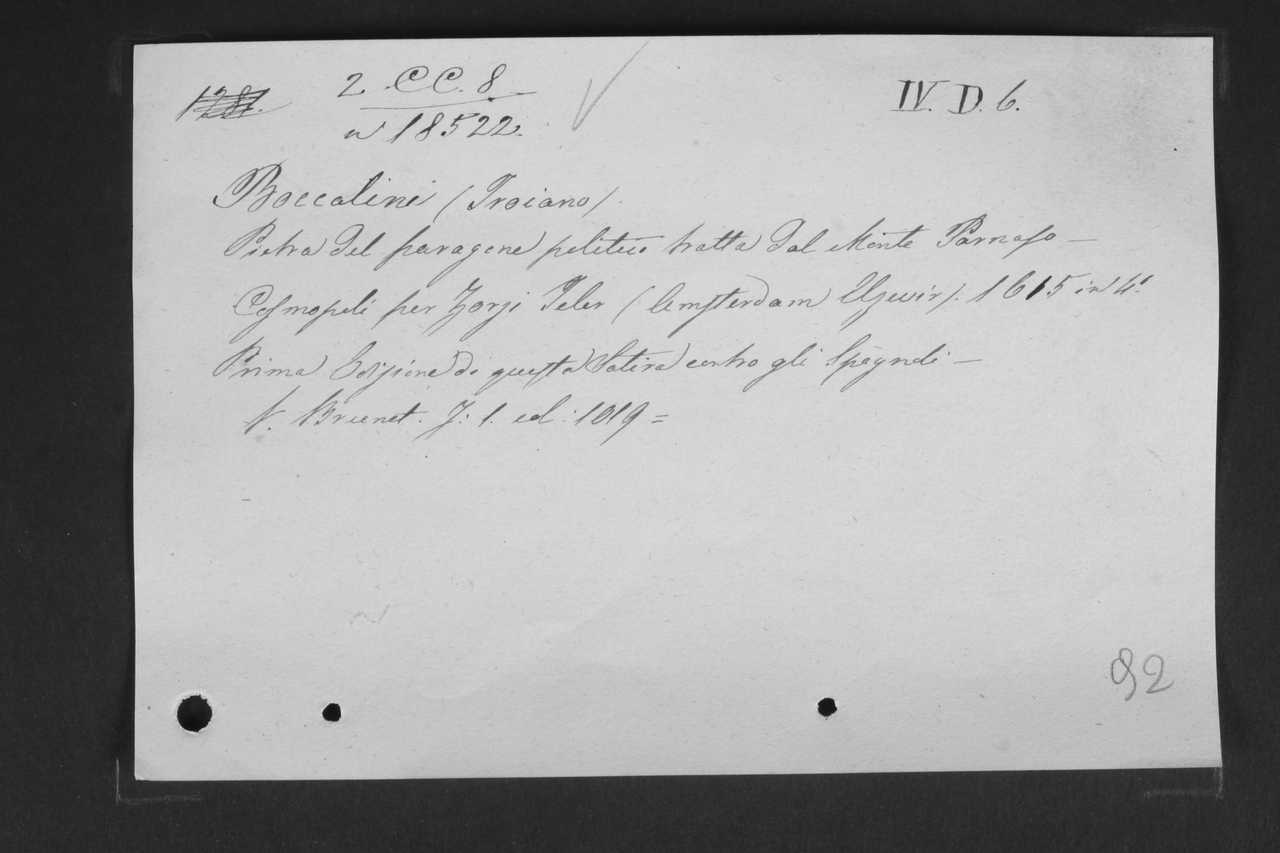 2. CC. 8
IV. D. 6.
n 18522.
Boccalini (Troiano).
Pietra del paragone politico tratta dal Monte Parnaso —
Cosmopoli per Zorzi Teler (Amsterdam Elzevir). 1615 in 4°.
Prima Edizione di questa Satira contro gli Spagnoli —
V. Brunet. T: 1. col: 1019 =
92